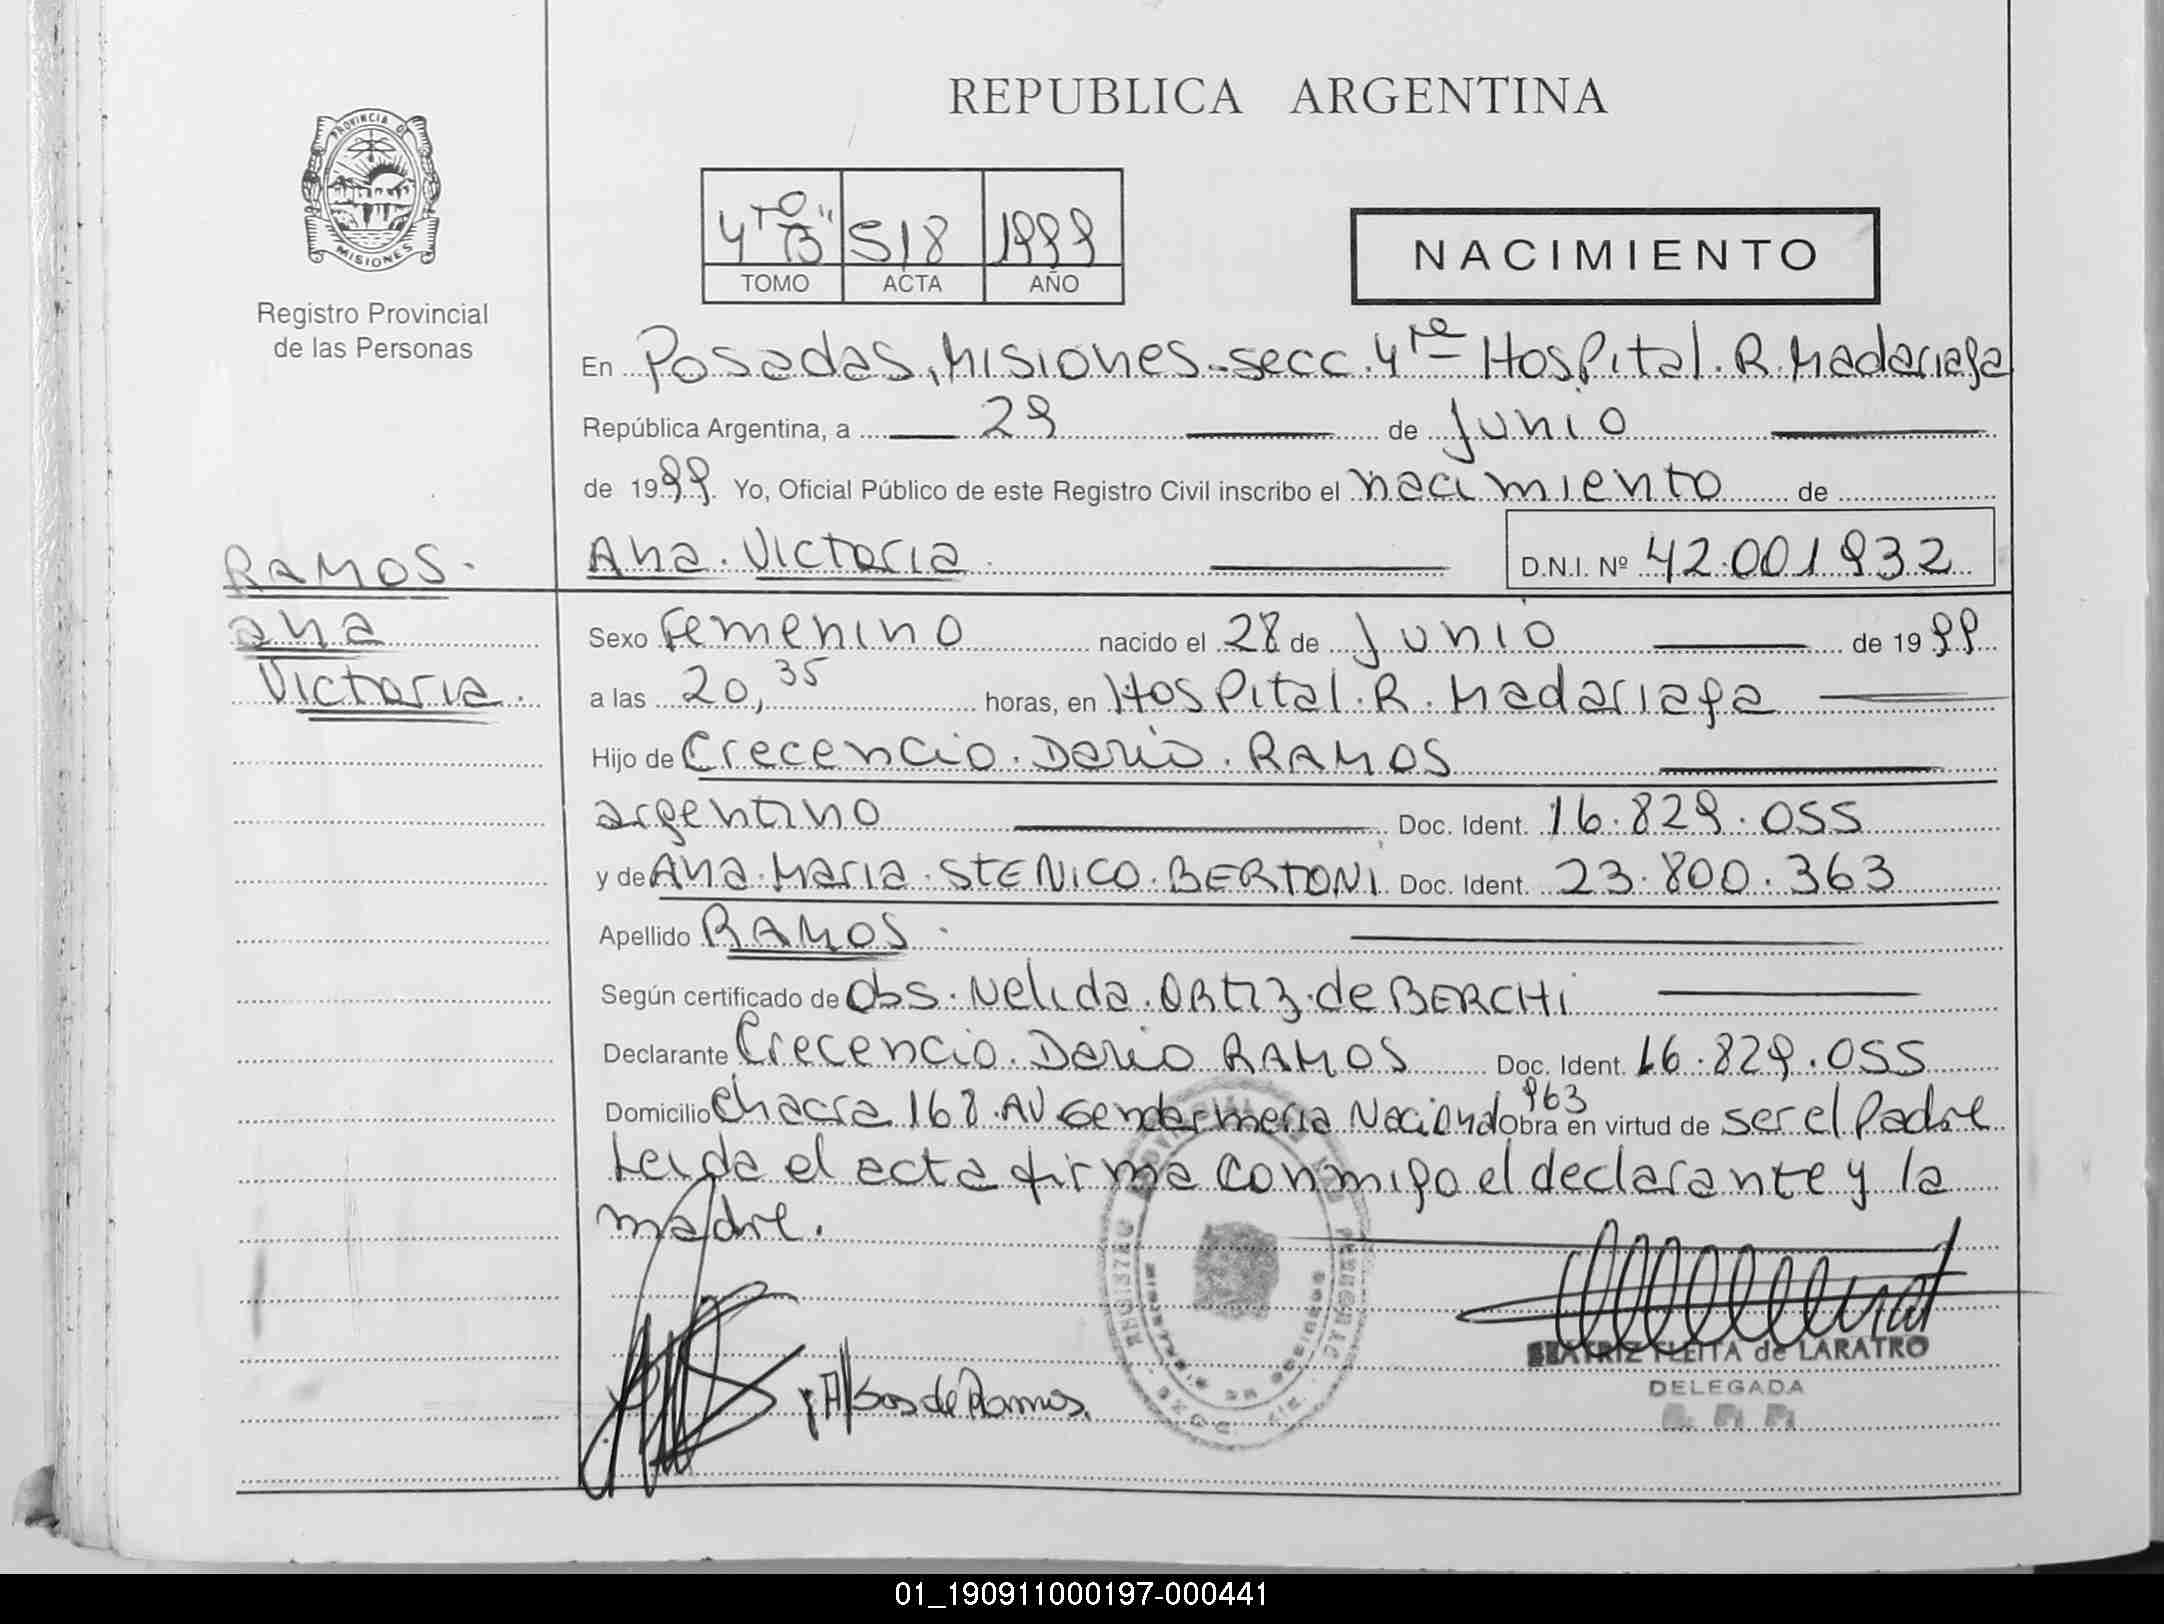 REPUBLICA ARGENTINA
PROVINCIA DE
MISIONES
Registro Provincial
de las Personas
4to "B" 518 1999
TOMO ACTA AÑO
NACIMIENTO
En Posadas, Misiones - secc. 4ta Hospital. R. Madariaga
República Argentina, a 29 de Junio
de 1999. Yo, Oficial Público de este Registro Civil inscribo el nacimiento de
Ana. Victoria. D.N.I. Nº 42.001932
RAMOS.
ana
Victoria.
Sexo Femenino nacido el 28 de Junio de 1999
a las 20,35 horas, en Hospital. R. Madariaga
Hijo de Crecencio. Dario. RAMOS
argentino Doc. Ident. 16.829.055
y de Ana. Maria. STENICO. BERTONI. Doc. Ident. 23.800.363
Apellido RAMOS.
Según certificado de Obs. Nelida. ORTIZ. de BERCHI
Declarante Crecencio. Dario RAMOS Doc. Ident. 16.829.055
Domicilio Chacra 168. AV Gendarmeria Nacional 963 Obra en virtud de ser el Padre
Leida el acta firma conmigo el declarante y la
madre.
de Ramos.
BEATRIZ FLEITA de LARATRO
DELEGADA
01_190911000197-000441